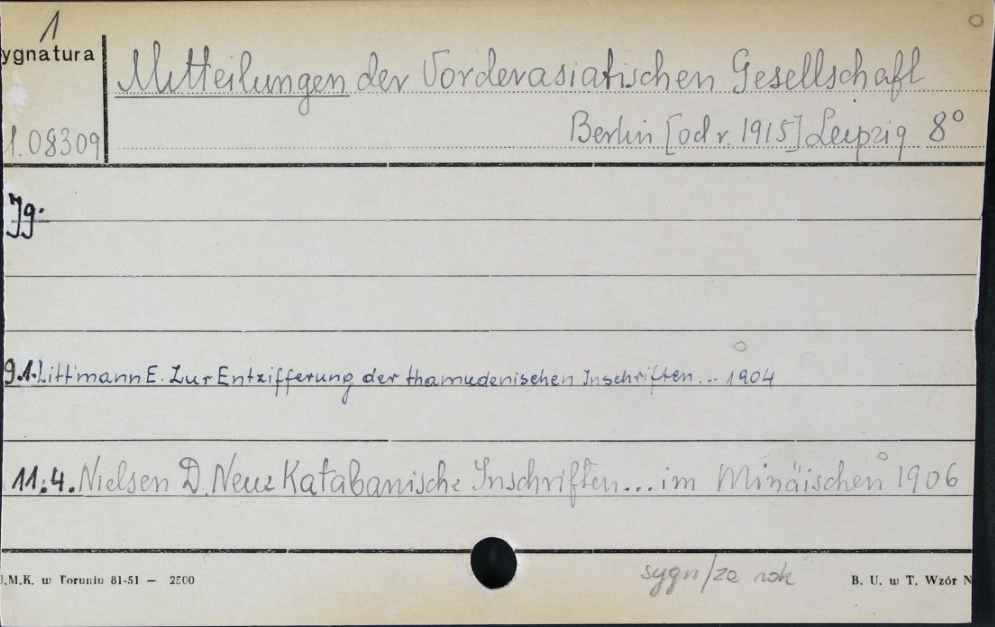 1
ygnatura
Mitteilungen der Vorderasiatischen Gesellschaft
1.08309
Berlin [od r. 1915] Leipzig 8°
Jg.
9.1. Littmann E. Zur Entzifferung der thamudenischen Inschriften... 1904
11:4. Nielsen D. Neue Katabanische Inschriften... im Minäischen 1906
sygn/za rok
J.M.K. w Toruniu 81-51 — 2500
B. U. w T. Wzór N